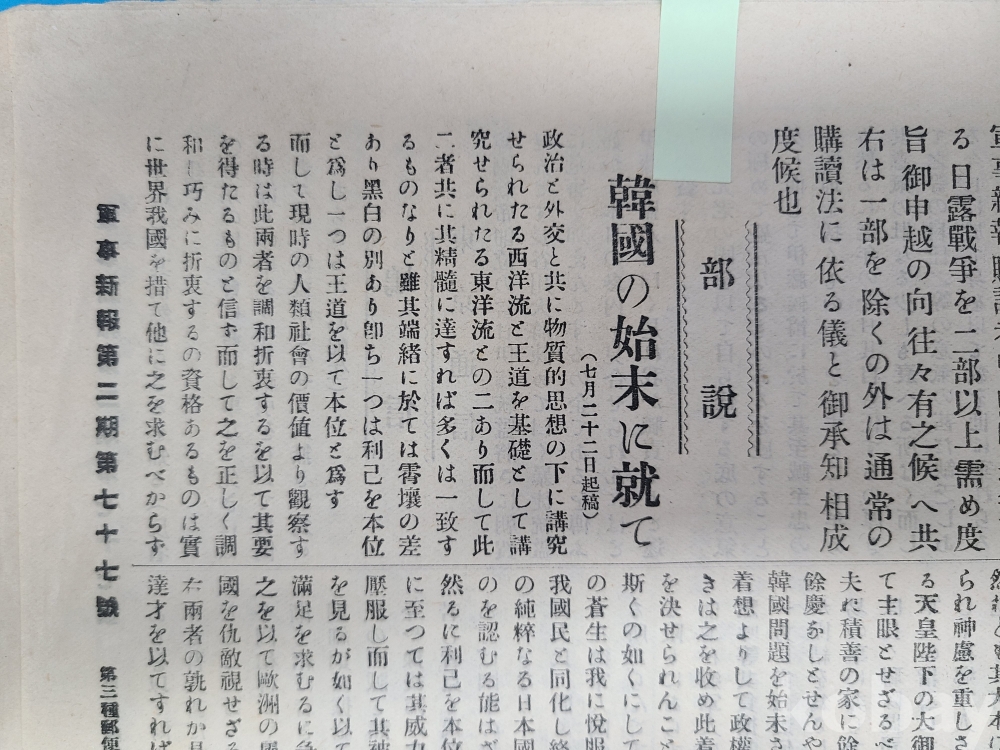 る日露戰爭を二部以上需め度
旨御申越の向往々有之候へ共
右は一部を除くの外は通常の
購讀法に依る儀と御承知相成
度候也
部說
韓國の始末に就て
(七月二十二日起稿)
政治と外交と共に物質的思想の下に講究
せられたる西洋流と王道を基礎として講
究せられたる東洋流との二あり而して此
二者共に其精髓に達すれば多くは一致す
るものなりと雖其端緒に於ては霄壤の差
あり黑白の別あり卽ち一つは利己を本位
と爲し一つは王道を以て本位と爲す
而して現時の人類社會の價値より觀察す
る時は此兩者を調和折衷するを以て其要
を得たるものと信ず而して之を正しく調
和し巧みに折衷するの資格あるものは實
に世界我國を措て他に之を求むべからず
られ神慮を重しさ
る天皇陛下の大御
て主眼とせざるべ
夫れ積善の家に餘
餘慶なしとせんや
韓國問題を始末さ
着想よりして政權
きは之を收め此着
を決せられんこと
斯くの如くにして
の蒼生は我に悅服
我國民と同化し終
の純粹なる日本國
のを認むる能はざ
然るに利己を本位
に至つては其威力
壓服し而して其被
を見るが如く以て
滿足を求むるに
之を以て歐洲の
國を仇敵視せざ
右兩者の孰れか
達才を以てすれば
軍事新報第二期第七十七號
第三種郵便